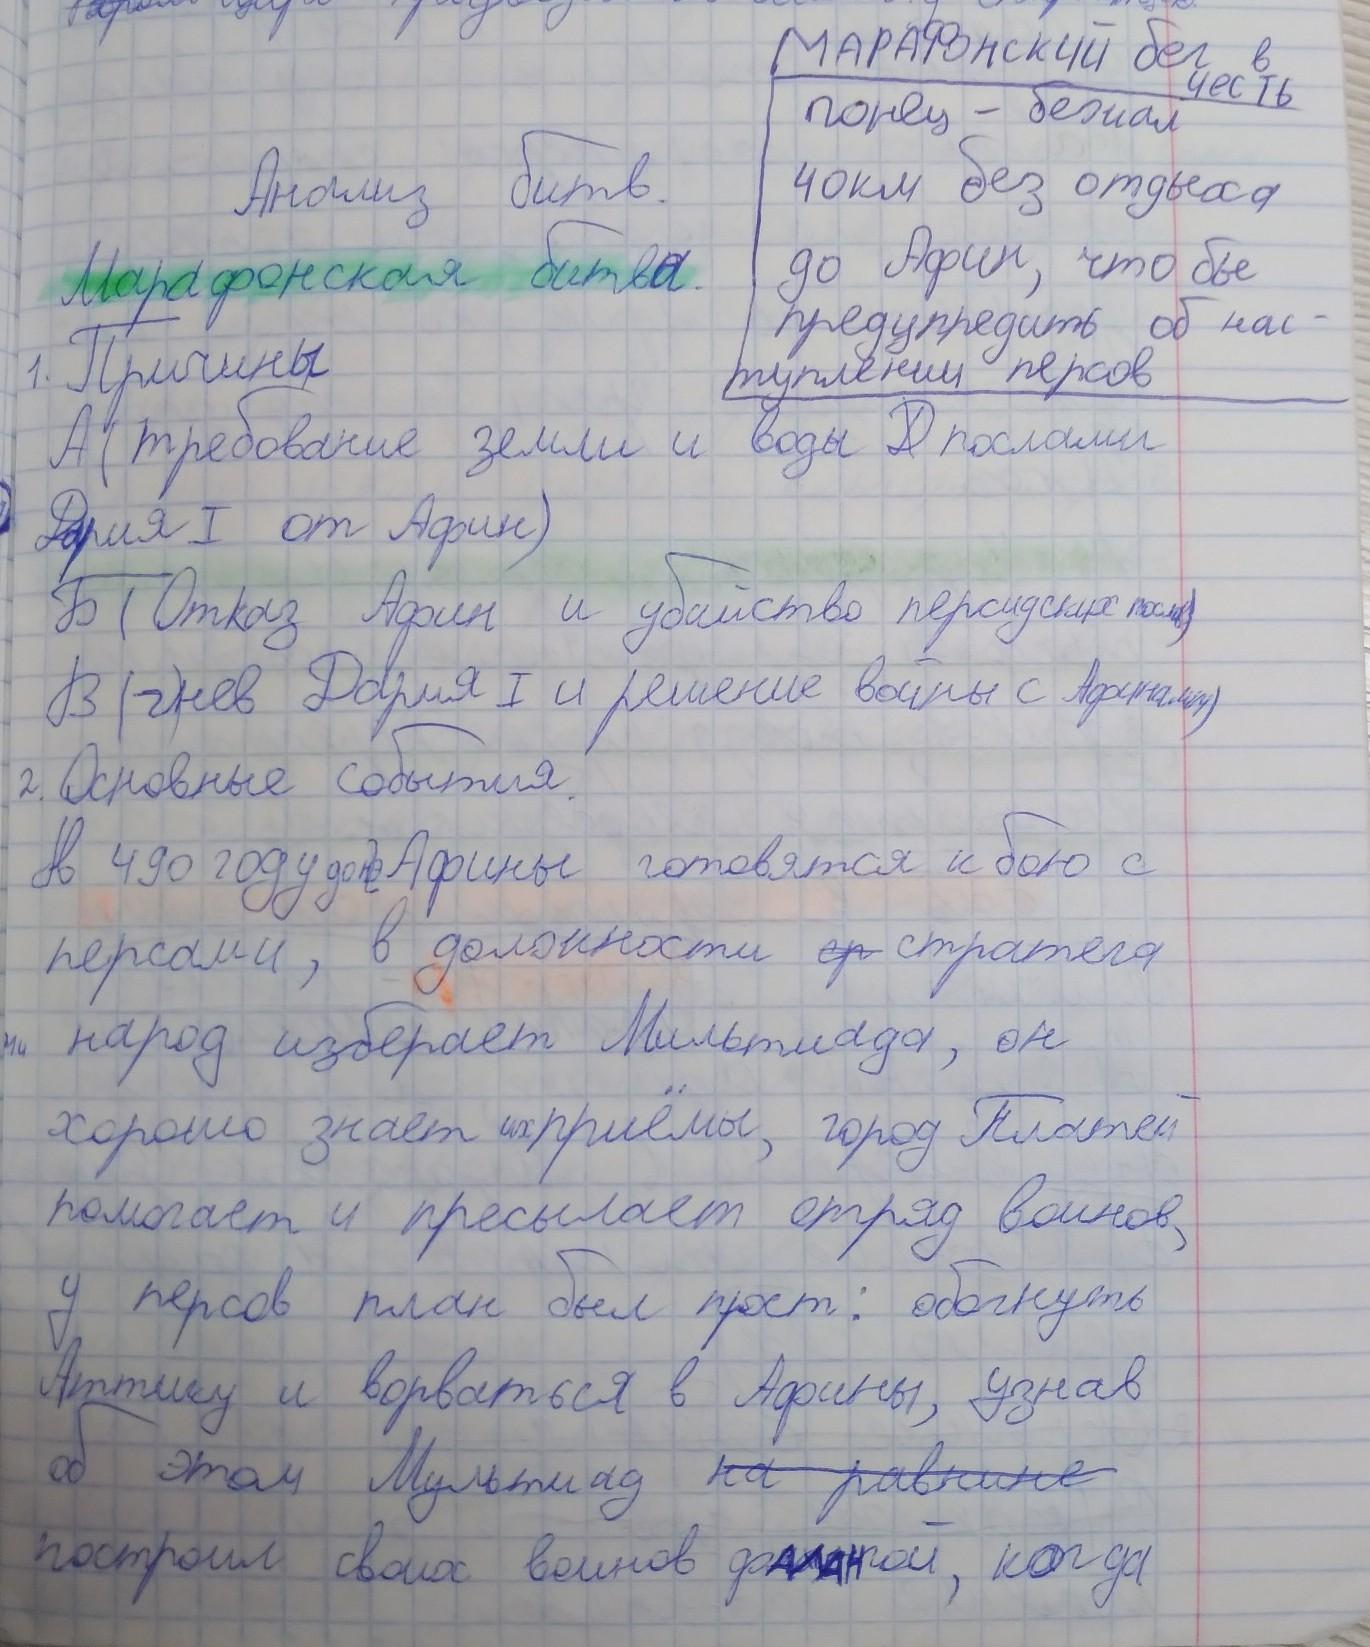 МАРАФОНСКИЙ бег в
честь
гонец – бежал
40км без отдыха
до Афин, что бы
предупредить об нас-
туплении персов
Анализ битв.
Марафонская битва.
1. Причины
А (требование земли и воды послами
Дария I от Афин)
Б (Отказ Афин и убийство персидских послов)
В (гнев Дария I и решение войны с Афинами)
2. Основные события.
В 490 году до н.э Афины готовятся к бою с
персами, в должности стратега
народ изберает Мильтиада, он
хорошо знает их приёмы, город Платеи
помогает и пресылает отряд воинов,
у персов план был прост: обогнуть
Аттику и ворваться в Афины, узнав
об этом Мультиад на равнине
построил своих воинов когда